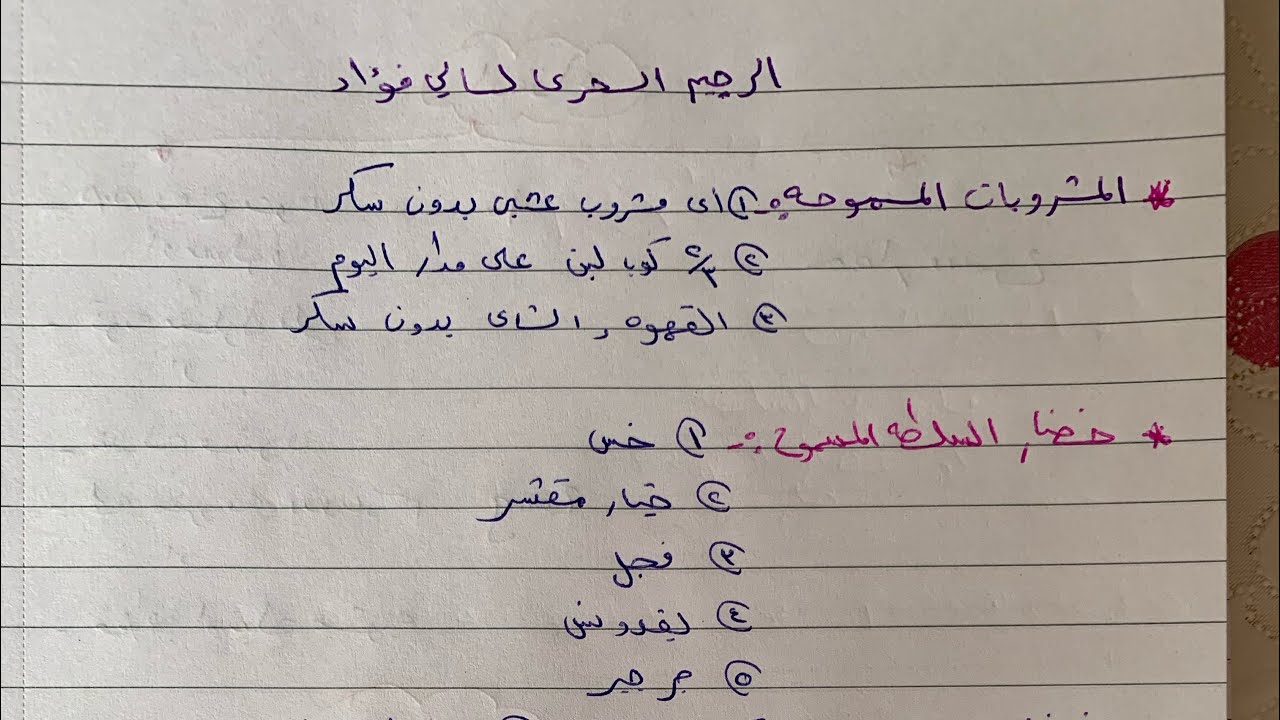 الرجيم السحرى لسالي فؤاد
* المشروبات المسموحه:- ١) أى مشروب عشبى بدون سكر
٢) ٢/٣ كوب لبن على مدار اليوم
٣) القهوه والشاى بدون سكر
* خضار السلطه المسموح:- ١) خس
٢) خيار مقشر
٣) فجل
٤) بقدونس
٥) جرجير